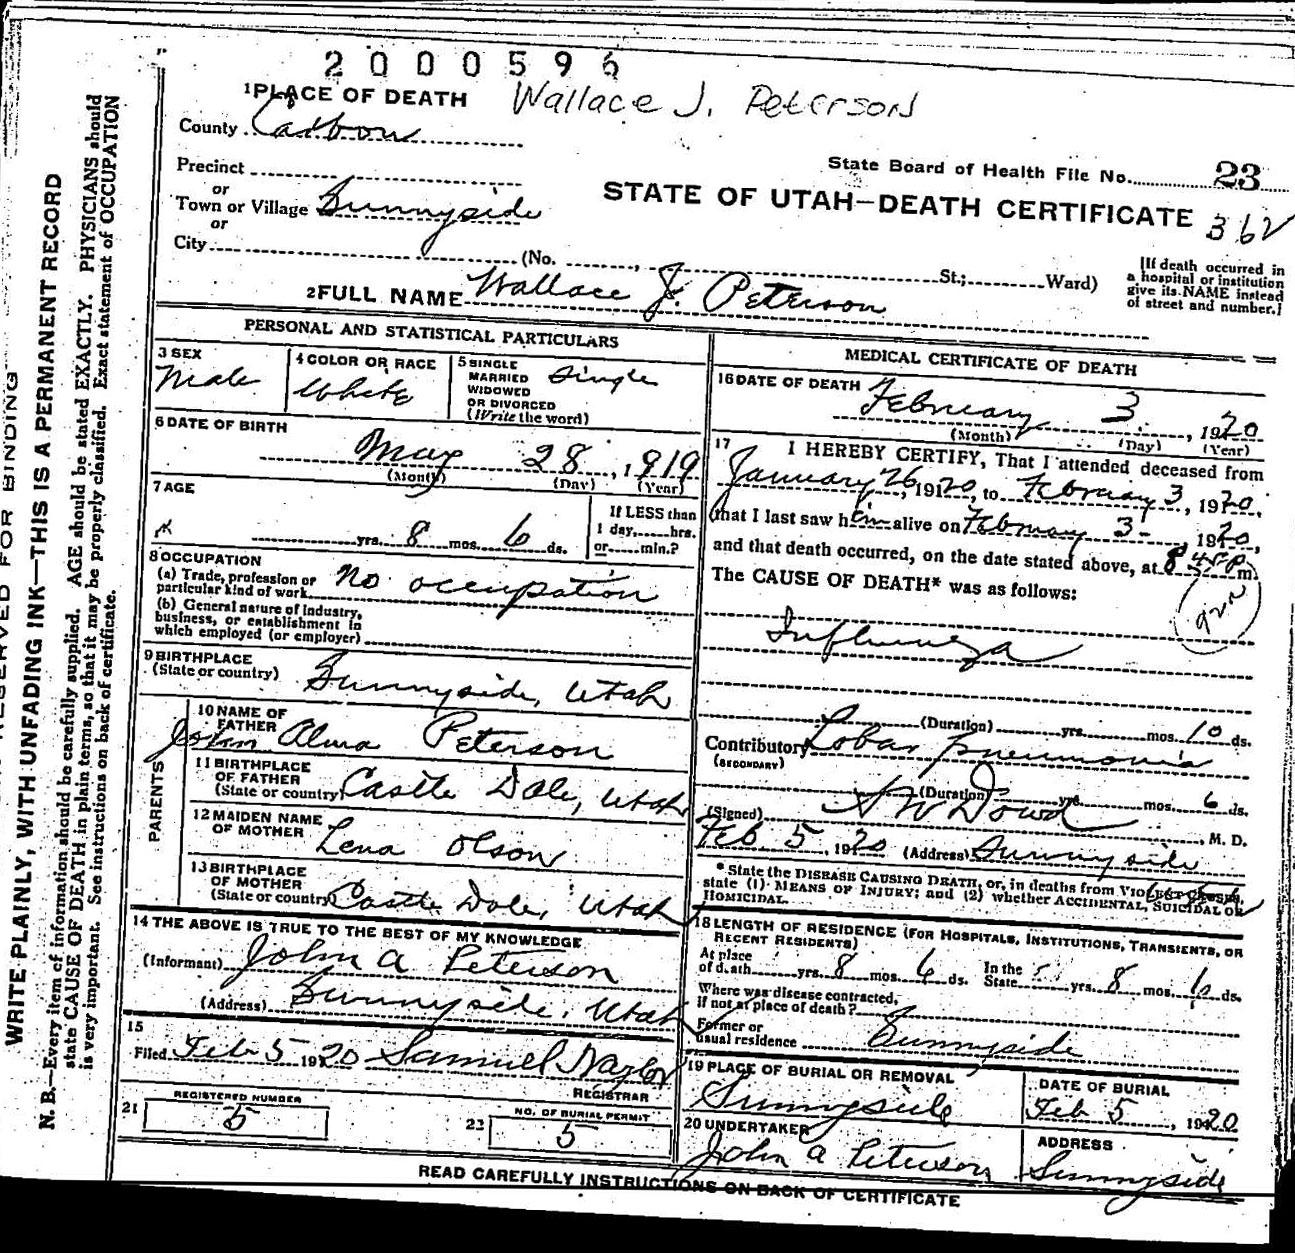 2000596
1 PLACE OF DEATH Wallace J. Peterson
County Carbon
State Board of Health File No. 23
Precinct
or
Town or Village Sunnyside
or
STATE OF UTAH—DEATH CERTIFICATE 362
City (No. , St.; Ward)
[If death occurred in
a hospital or institution
give its NAME instead
of street and number.]
2 FULL NAME Wallace J. Peterson
PERSONAL AND STATISTICAL PARTICULARS
3 SEX
Male
4 COLOR OR RACE
White
5 SINGLE
MARRIED
WIDOWED
OR DIVORCED
(Write the word)
Single
6 DATE OF BIRTH
May 28, 1919
(Month) (Day) (Year)
7 AGE
yrs. 8 mos. 6 ds.
If LESS than
1 day, hrs.
or min.?
8 OCCUPATION
(a) Trade, profession or
particular kind of work No occupation
(b) General nature of industry,
business, or establishment in
which employed (or employer)
9 BIRTHPLACE
(State or country) Sunnyside, Utah
PARENTS
10 NAME OF
FATHER
John Alma Peterson
11 BIRTHPLACE
OF FATHER
(State or country) Castle Dale, Utah
12 MAIDEN NAME
OF MOTHER Lena Olson
13 BIRTHPLACE
OF MOTHER
(State or country) Castle Dale, Utah
14 THE ABOVE IS TRUE TO THE BEST OF MY KNOWLEDGE
(Informant) John A Peterson
(Address) Sunnyside, Utah
15
Filed Feb 5 1920 Samuel Naylor
REGISTRAR
21 REGISTERED NUMBER
5
23 NO. OF BURIAL PERMIT
5
MEDICAL CERTIFICATE OF DEATH
16 DATE OF DEATH February 3, 1920
(Month) (Day) (Year)
17 I HEREBY CERTIFY, That I attended deceased from
January 26, 1920, to February 3, 1920,
that I last saw him alive on February 3-, 1920,
and that death occurred, on the date stated above, at 8 45 P m.
The CAUSE OF DEATH* was as follows:
Influenza
(Duration) yrs. mos. 10 ds.
Contributory Lobar pneumonia
(SECONDARY)
(Duration) yrs. mos. 6 ds.
(Signed) A W Dowd, M. D.
Feb 5, 1920 (Address) Sunnyside
* State the DISEASE CAUSING DEATH, or, in deaths from VIOLENT CAUSES,
state (1) MEANS OF INJURY; and (2) whether ACCIDENTAL, SUICIDAL OR
HOMICIDAL.
18 LENGTH OF RESIDENCE (FOR HOSPITALS, INSTITUTIONS, TRANSIENTS, OR
RECENT RESIDENTS)
At place
of death yrs. 8 mos. 6 ds. In the
State yrs. 8 mos. 6 ds.
Where was disease contracted,
if not at place of death?
Former or
usual residence Sunnyside
19 PLACE OF BURIAL OR REMOVAL
Sunnyside
DATE OF BURIAL
Feb 5, 1920
20 UNDERTAKER
John A Peterson
ADDRESS
Sunnyside
READ CAREFULLY INSTRUCTIONS ON BACK OF CERTIFICATE
RESERVED FOR BINDING
WRITE PLAINLY, WITH UNFADING INK—THIS IS A PERMANENT RECORD
N. B.—Every item of information should be carefully supplied. AGE should be stated EXACTLY. PHYSICIANS should
state CAUSE OF DEATH in plain terms, so that it may be properly classified. Exact statement of OCCUPATION
is very important. See instructions on back of certificate.